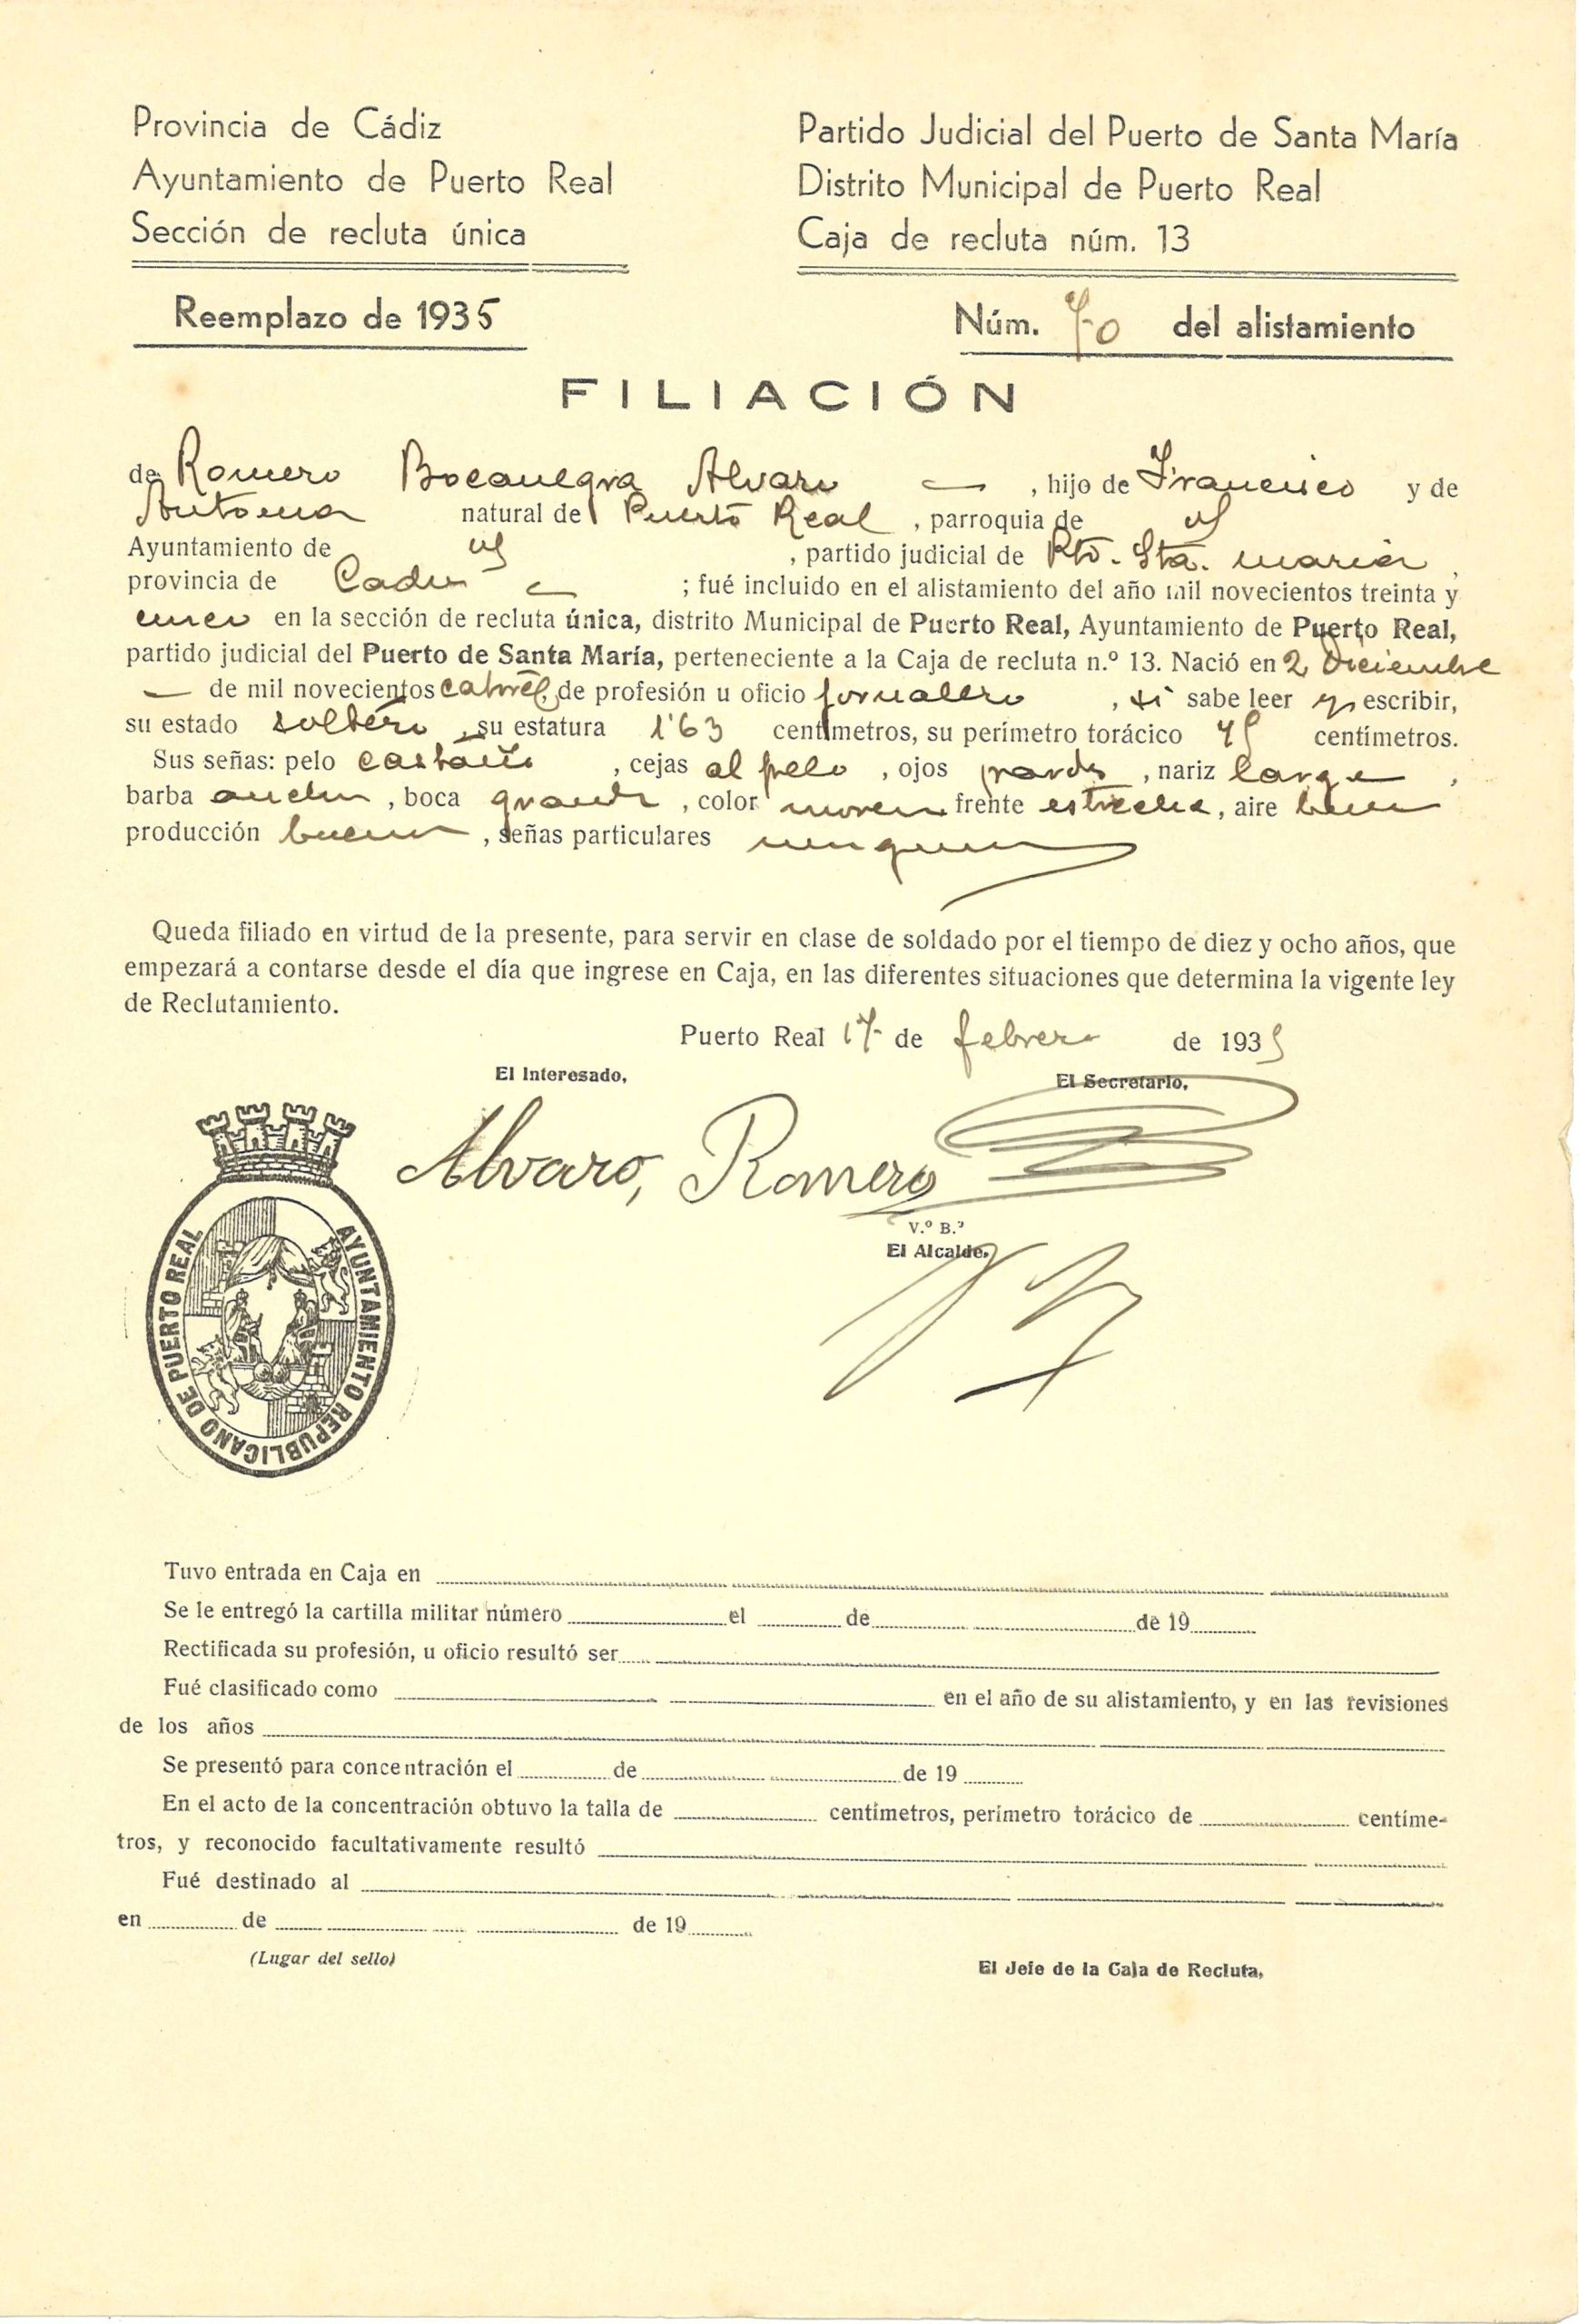 Provincia de Cádiz
Ayuntamiento de Puerto Real
Sección de recluta única
Partido Judicial del Puerto de Santa María
Distrito Municipal de Puerto Real
Caja de recluta núm. 13
Reemplazo de 1935
Núm. 70 del alistamiento
FILIACIÓN
de Romero Bocanegra Alvaro , hijo de Francisco y de
Antonia natural de Puerto Real , parroquia de
Ayuntamiento de , partido judicial de Pto. Sta. Maria ,
provincia de Cadiz ; fué incluido en el alistamiento del año mil novecientos treinta y
cinco en la sección de recluta única, distrito Municipal de Puerto Real, Ayuntamiento de Puerto Real,
partido judicial del Puerto de Santa María, perteneciente a la Caja de recluta n.º 13. Nació en 2 Diciembre
— de mil novecientos catorce, de profesión u oficio jornalero , si sabe leer y escribir,
su estado soltero , su estatura 1'63 centímetros, su perímetro torácico centímetros.
Sus señas: pelo castaño , cejas al pelo , ojos pardos , nariz larga ,
barba ancha , boca grande , color moreno frente estrecha, aire bueno
producción buena , señas particulares ninguna
Queda filiado en virtud de la presente, para servir en clase de soldado por el tiempo de diez y ocho años, que
empezará a contarse desde el día que ingrese en Caja, en las diferentes situaciones que determina la vigente ley
de Reclutamiento.
Puerto Real 17 de febrero de 1935
El Interesado,
El Secretario,
Alvaro, Romero
V.º B.º
El Alcalde,
AYUNTAMIENTO REPUBLICANO DE PUERTO REAL
Tuvo entrada en Caja en
Se le entregó la cartilla militar número el de de 19
Rectificada su profesión, u oficio resultó ser
Fué clasificado como en el año de su alistamiento, y en las revisiones
de los años
Se presentó para concentración el de de 19
En el acto de la concentración obtuvo la talla de centímetros, perímetro torácico de centíme-
tros, y reconocido facultativamente resultó
Fué destinado al
en de de 19
(Lugar del sello)
El Jefe de la Caja de Recluta,